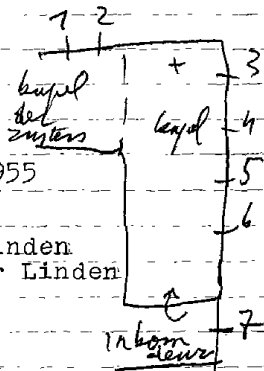 1 2
+ 3
kapel
der
zusters
kapel 4
955
5
6
inden
r Linden
7
inkom
deur